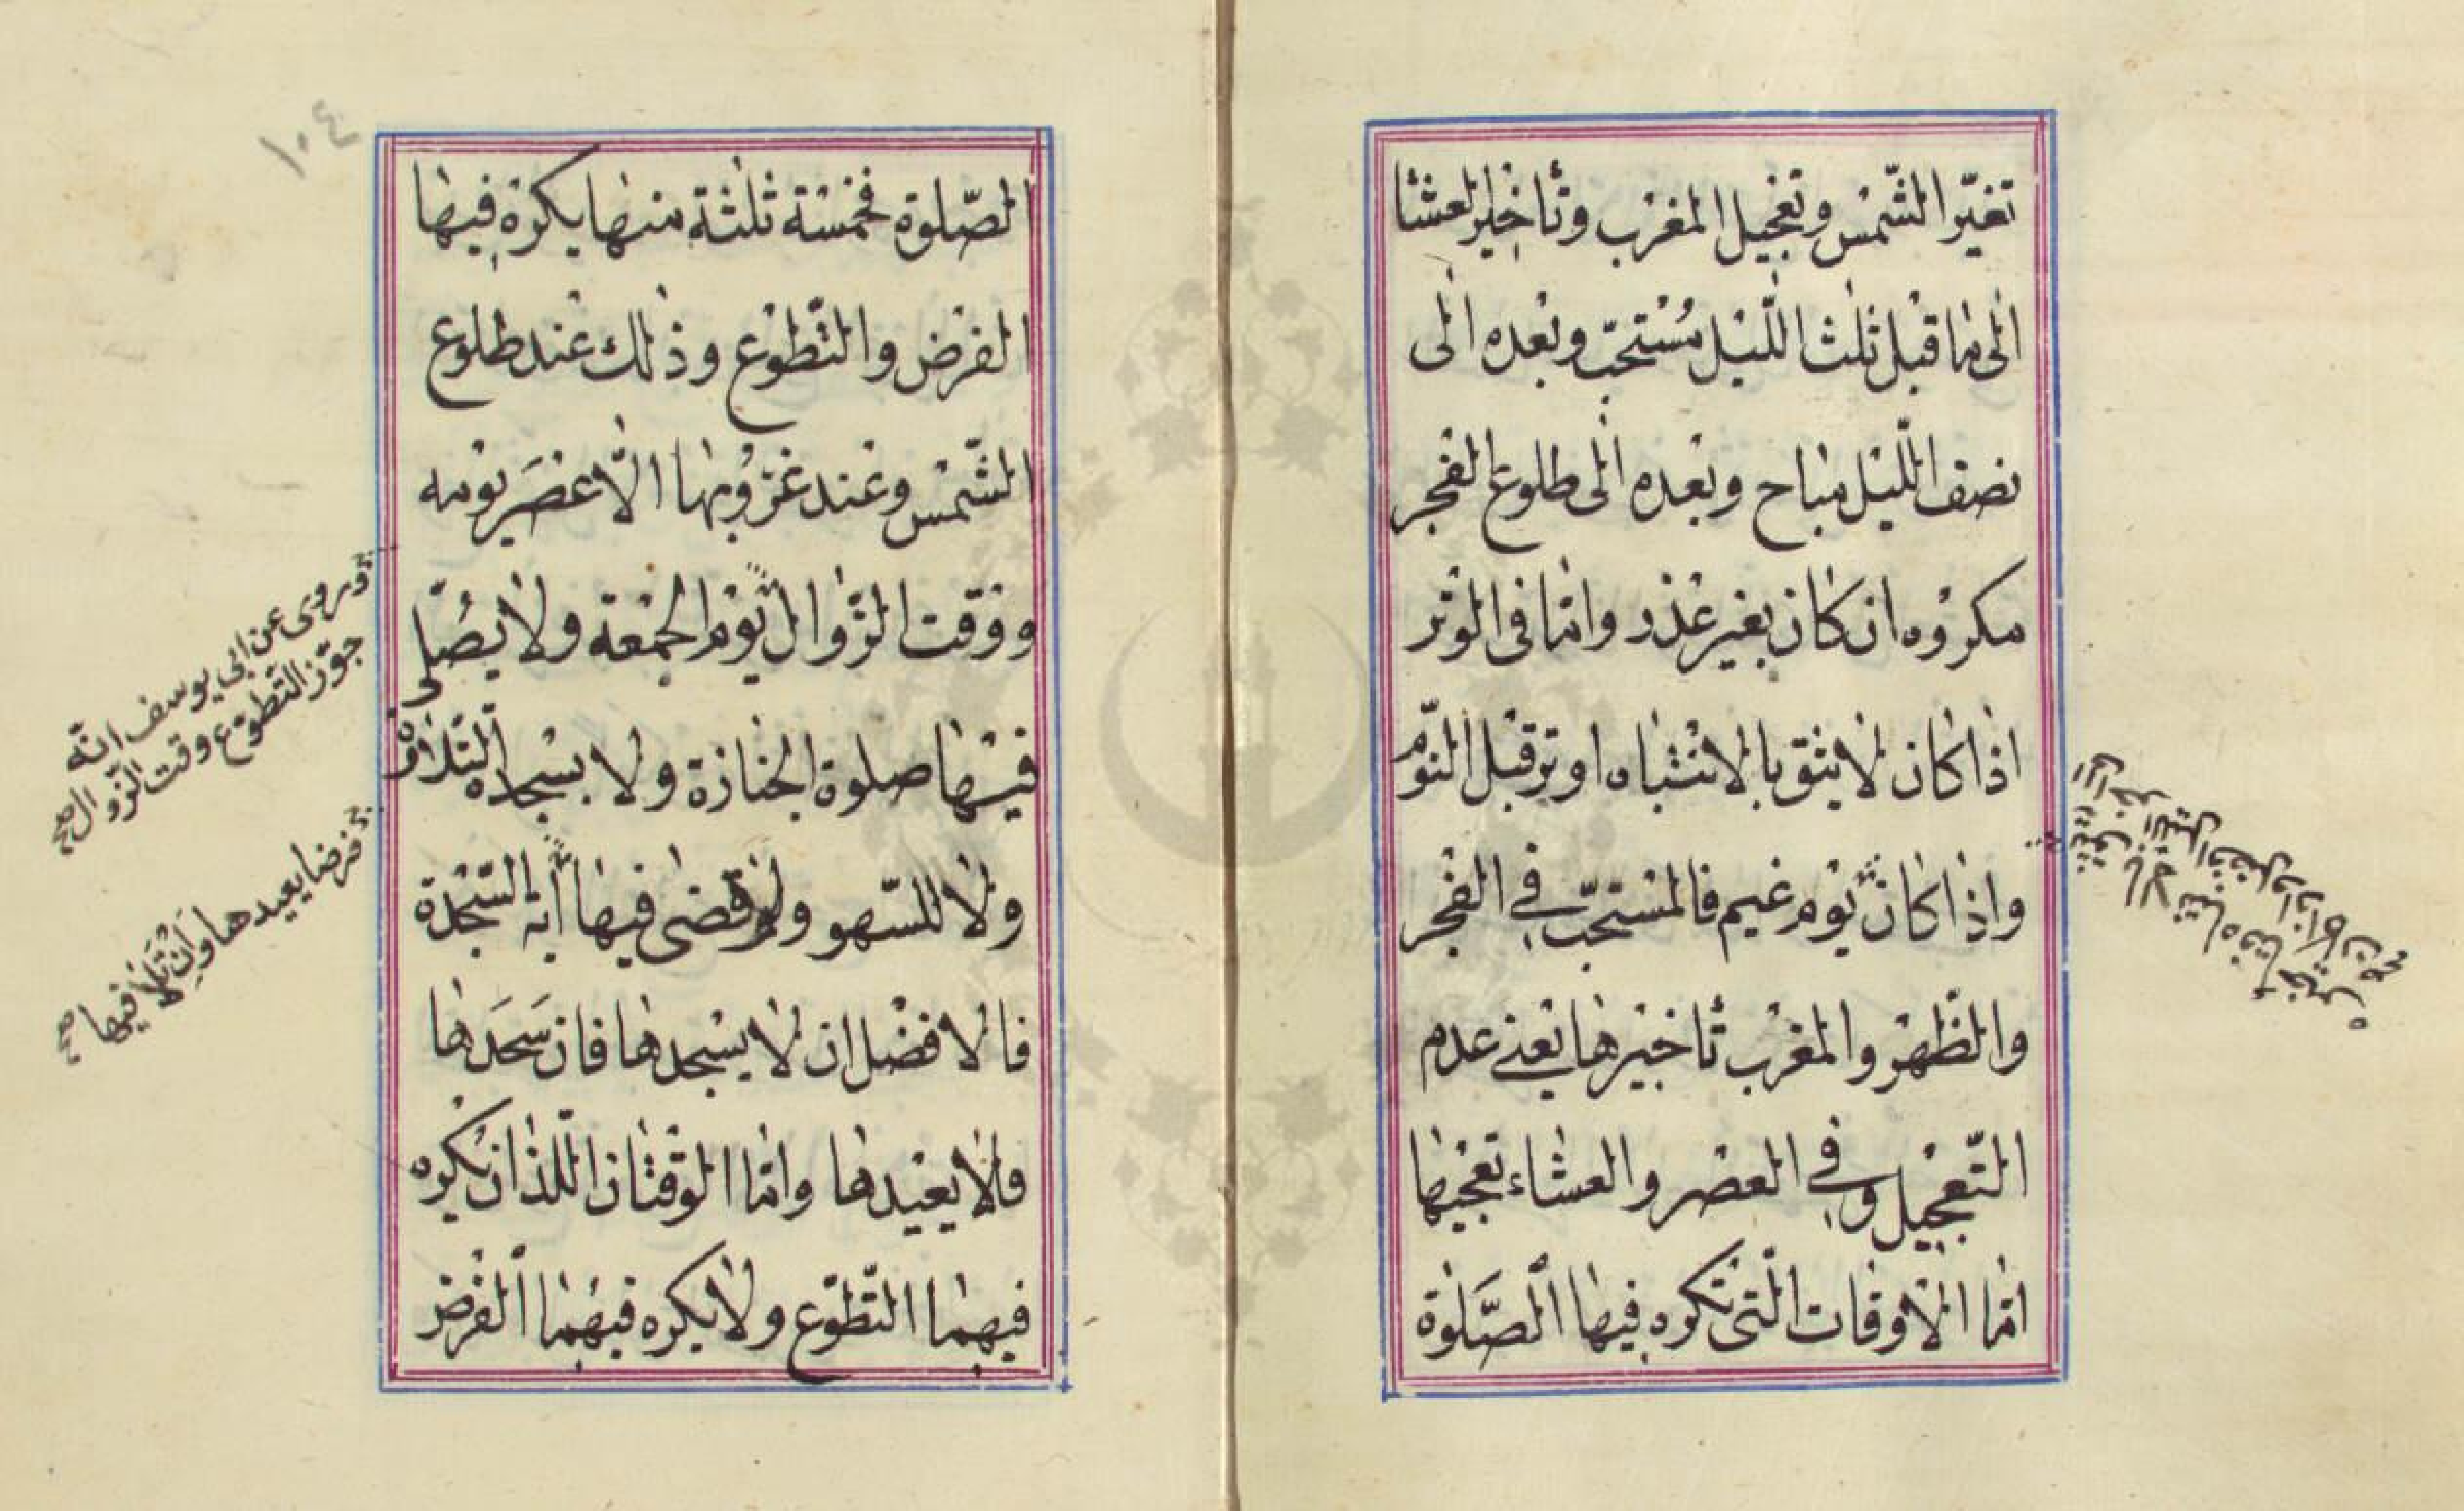 تغيّر الشّمس وتعجيل المغرب وتأخير لعشا
الى ما قبل ثلث اللّيل مستحبّ وبعده الى
نصف اللّيل مباح وبعده الى طلوع الفجر
مكروه ان كان بغير عذر وامّا فى الوتر
اذا كان لا يثق بالانتباه اوتر قبل النّوم
واذا كان يوم غيم فالمستحبّ فى الفجر
والظّهر والمغرب تأخيرها يعنى عدم
التّعجيل وفى العصر والعشاء تعجيها
امّا الاوقات الّتى تكره فيها الصّلوة
الصّلوة فخمسة ثلثة منها يكره فيها
الفرض والتّطوّع وذلك عند طلوع
الشّمس وعند غروبها الّا عصر يومه
ووقت الزّوال يوم الجمعة ولا يصلّى
فيها صلوة الجنازة ولا يسجد التّلاوة
ولا للسّهو ولو قضى فيها اية السّجدة
فالافضل ان لا يسجدها فان سجدها
فلا يعيدها وامّا الوقتان اللّذان يكره
فيهما التّطوّع ولا يكره فيهما الفرض
وروى عن ابى يوسف انّه
جوّز التّطوّع وقت الزّوال صح
فرضا يعيدها وان تلا فيها صح
١٠٤